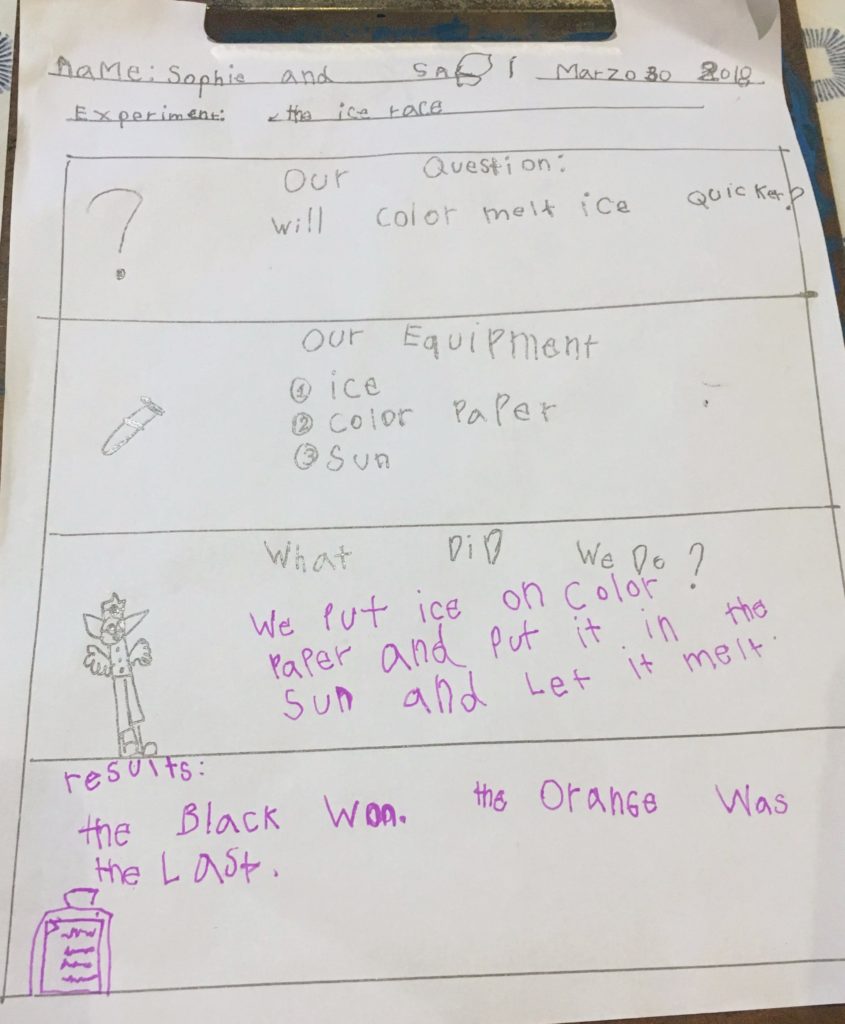 NaMe: Sophie and Marzo 30 2018
Experiment: the ice race
Our Question:
Will Color melt ice Quicker?
Our Equipment
① ice
② Color Paper
③ Sun
What DiD We Do?
We Put ice on Color
Paper and Put it in the
Sun and Let it melt.
results:
the Black Won. the Orange Was
the Last.